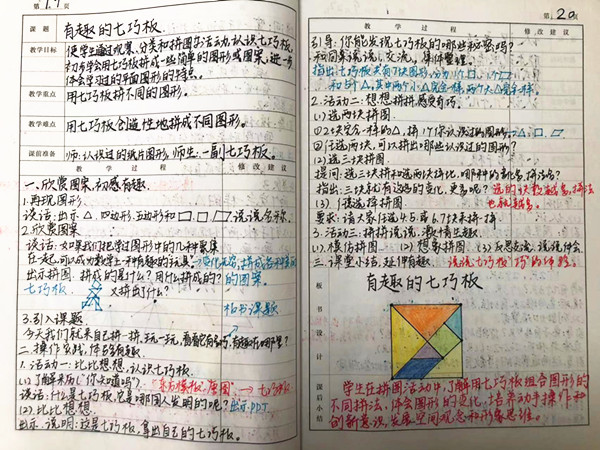 第19页
课题 有趣的七巧板
教学目标 使学生通过观察、分类和拼图等活动,认识七巧板,
初步学会用七巧板拼成一些简单的图形或图案,进一步
体会学习过的平面图形的特点。
教学重点 用七巧板拼不同的图形。
教学难点 用七巧板创造性地拼成不同图形。
课前准备 师:认识过的纸片图形,师生:一副七巧板。
教学过程 修改建议
一、欣赏图案,初感有趣。
1.再现图形
谈话:出示△、四边形、五边形和□、▭、▱,说说名称。
2.欣赏图案
谈话:如果我们把学过图形中的几种聚集
在一起,可以成为数学上一种有趣的玩具
出示拼图:拼成的是什么?用什么拼成的?的图案。
七巧板 又拼出了什么?
板书课题
3.引入课题
今天我们就来自己拼一拼、玩一玩,看看它有多巧,有趣在哪里?
二、操作实践,体会有趣。
1.活动一:比比想想,认识七巧板。
(1)了解来历(“你知道吗”)
谈话:什么是七巧板,它是哪国人发明的呢?出示PPT
(2)比比想想
出示、说明:这是七巧板,拿出自己的七巧板。
第20页
教学过程 修改建议
引导:你能发现七巧板的哪些秘密吗?
和同桌说说,交流,集体整理。
指出:七巧板共有7块图形,分为1个□、1个▱
和5个△,其中两个小△完全一样,两个大△完全一样。
2.活动二:想想拼拼,感受有巧。
(1)选两块拼图
①2块完全一样的△,拼1个你认识过的图形。△、□、▱
②任选两块,可以拼出哪些认识过的图形?
(2)选三块拼图
提问:选三块拼和选两块拼比,哪种的变化多,拼法多?
指出:三块就有这么多的变化,更多呢?选的块数越多,拼法
(3)任意选择拼图 也就越多。
要求:请大家任选4、5、6、7块来拼一拼
3.活动三:拼拼说说,激情生趣。
(1)模仿拼图 (2)想象拼图 (3)反思交流,说说体会
三、课堂小结,延伸有趣 说说七巧板“巧”的体验。
板书设计 有趣的七巧板
课后小结 学生在拼图活动中,了解用七巧板组合图形的
不同拼法,体会图形的变化,培养动手操作和
创新意识,发展空间观念和形象思维。